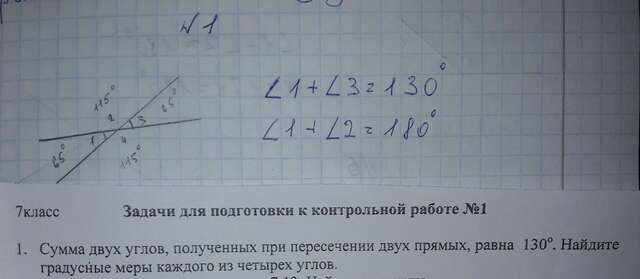 №1
115°
2
65°
3
1
4
65°
115°
∠1+∠3=130°
∠1+∠2=180°
7класс Задачи для подготовки к контрольной работе №1
1. Сумма двух углов, полученных при пересечении двух прямых, равна 130°. Найдите
градусные меры каждого из четырех углов.